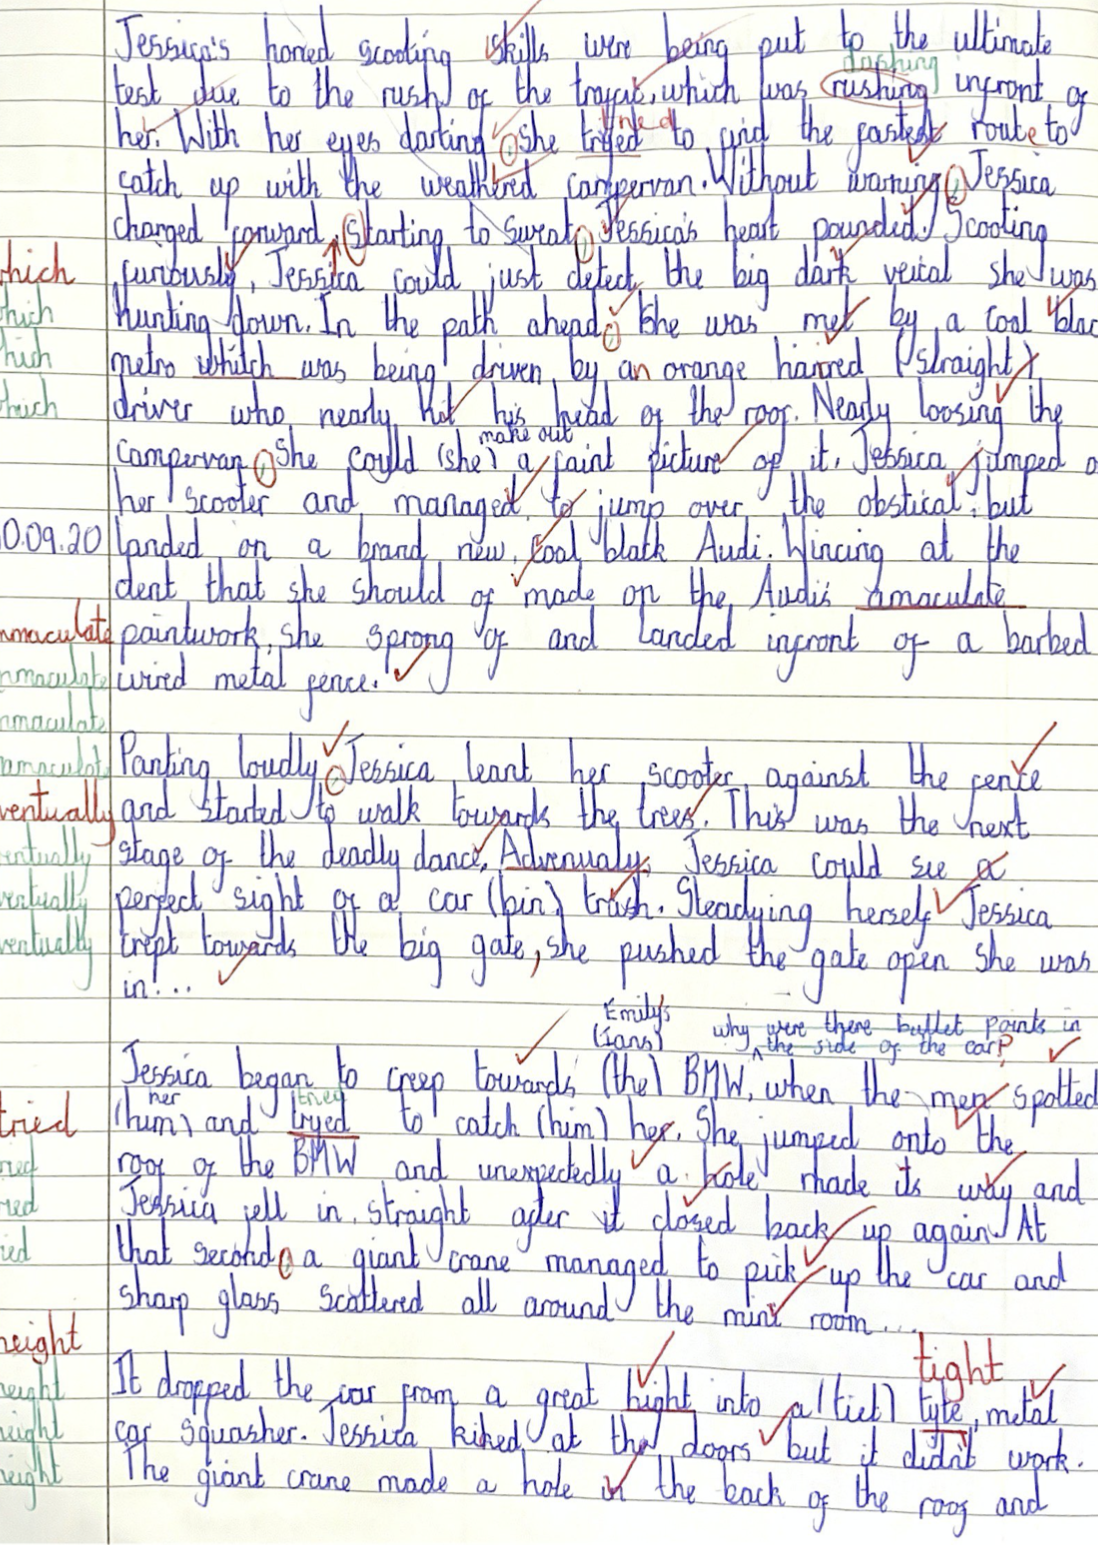 Jessica's honed scooting skills were being put to the ultimate
dashing
test due to the rush of the trafic, which was rushing infront of
her. With her eyes darting, she tryed to find the fastest route to
catch up with the weathered campervan. Without warning, Jessica
charged forward. Starting to sweat, Jessica's heart pounded. Scooting
hich
furiously, Jessica could just detect the big dark veical she was
hich
hunting down. In the path ahead, she was met by a coal blac
hich
metro whitch was being driven by an orange haired (straight)
hich
driver who nearly hit his head of the roof. Nearly loosing the
make out
campervan, she could (she) a faint picture of it. Jessica jumped o
her scooter and managed to jump over the obstical; but
0.09.20
landed on a brand new, coal black Audi. Wincing at the
dent that she should of made on the Audi's amaculate
mmaculate
paintwork, she sprong of and landed infront of a barbed
nmaculate
wired metal fence.
nmaculate
amaculate
Panting loudly, Jessica leant her scooter against the fence
ventually
and started to walk towards the trees. This was the next
entually
stage of the deadly dance. Advenualy, Jessica could see a
ventually
perfect sight of a car (bin) trash. Steadying herself Jessica
ventually
crept towards the big gate, she pushed the gate open she was
in!...
Emily's
(Ians)
why were there bullet points in
the side of the car?
Jessica began to creep towards (the) BMW, when the men spotted
her
tried
tried
(him) and tryed to catch (him) her. She jumped onto the
ied
roof of the BMW and unexpectedly a hole made its way and
ied
Jessica fell in, straight after it closed back up again. At
ied
that second, a giant crane managed to pick up the car and
sharp glass scattered all around the mini room...
height
tight
It dropped the car from a great hight into a (tiet) tyte, metal
eight
car squasher. Jessica kiked at the doors but it didn't work.
eight
The giant crane made a hole in the back of the roof and
eight